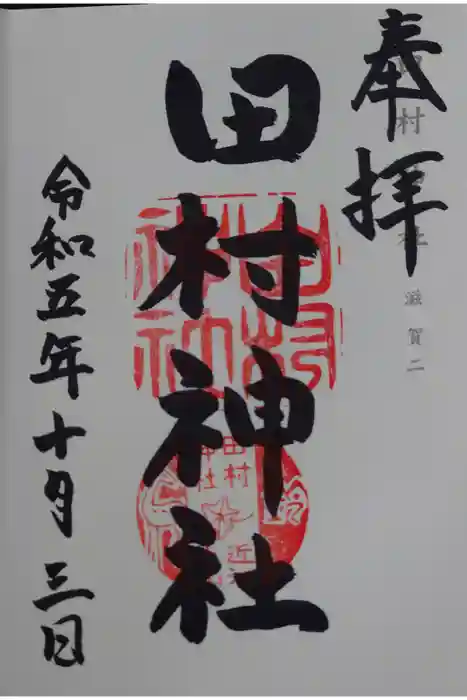 奉拝
田村神社 滋賀二
田村神社
田村
神社
近江
令和五年十月三日